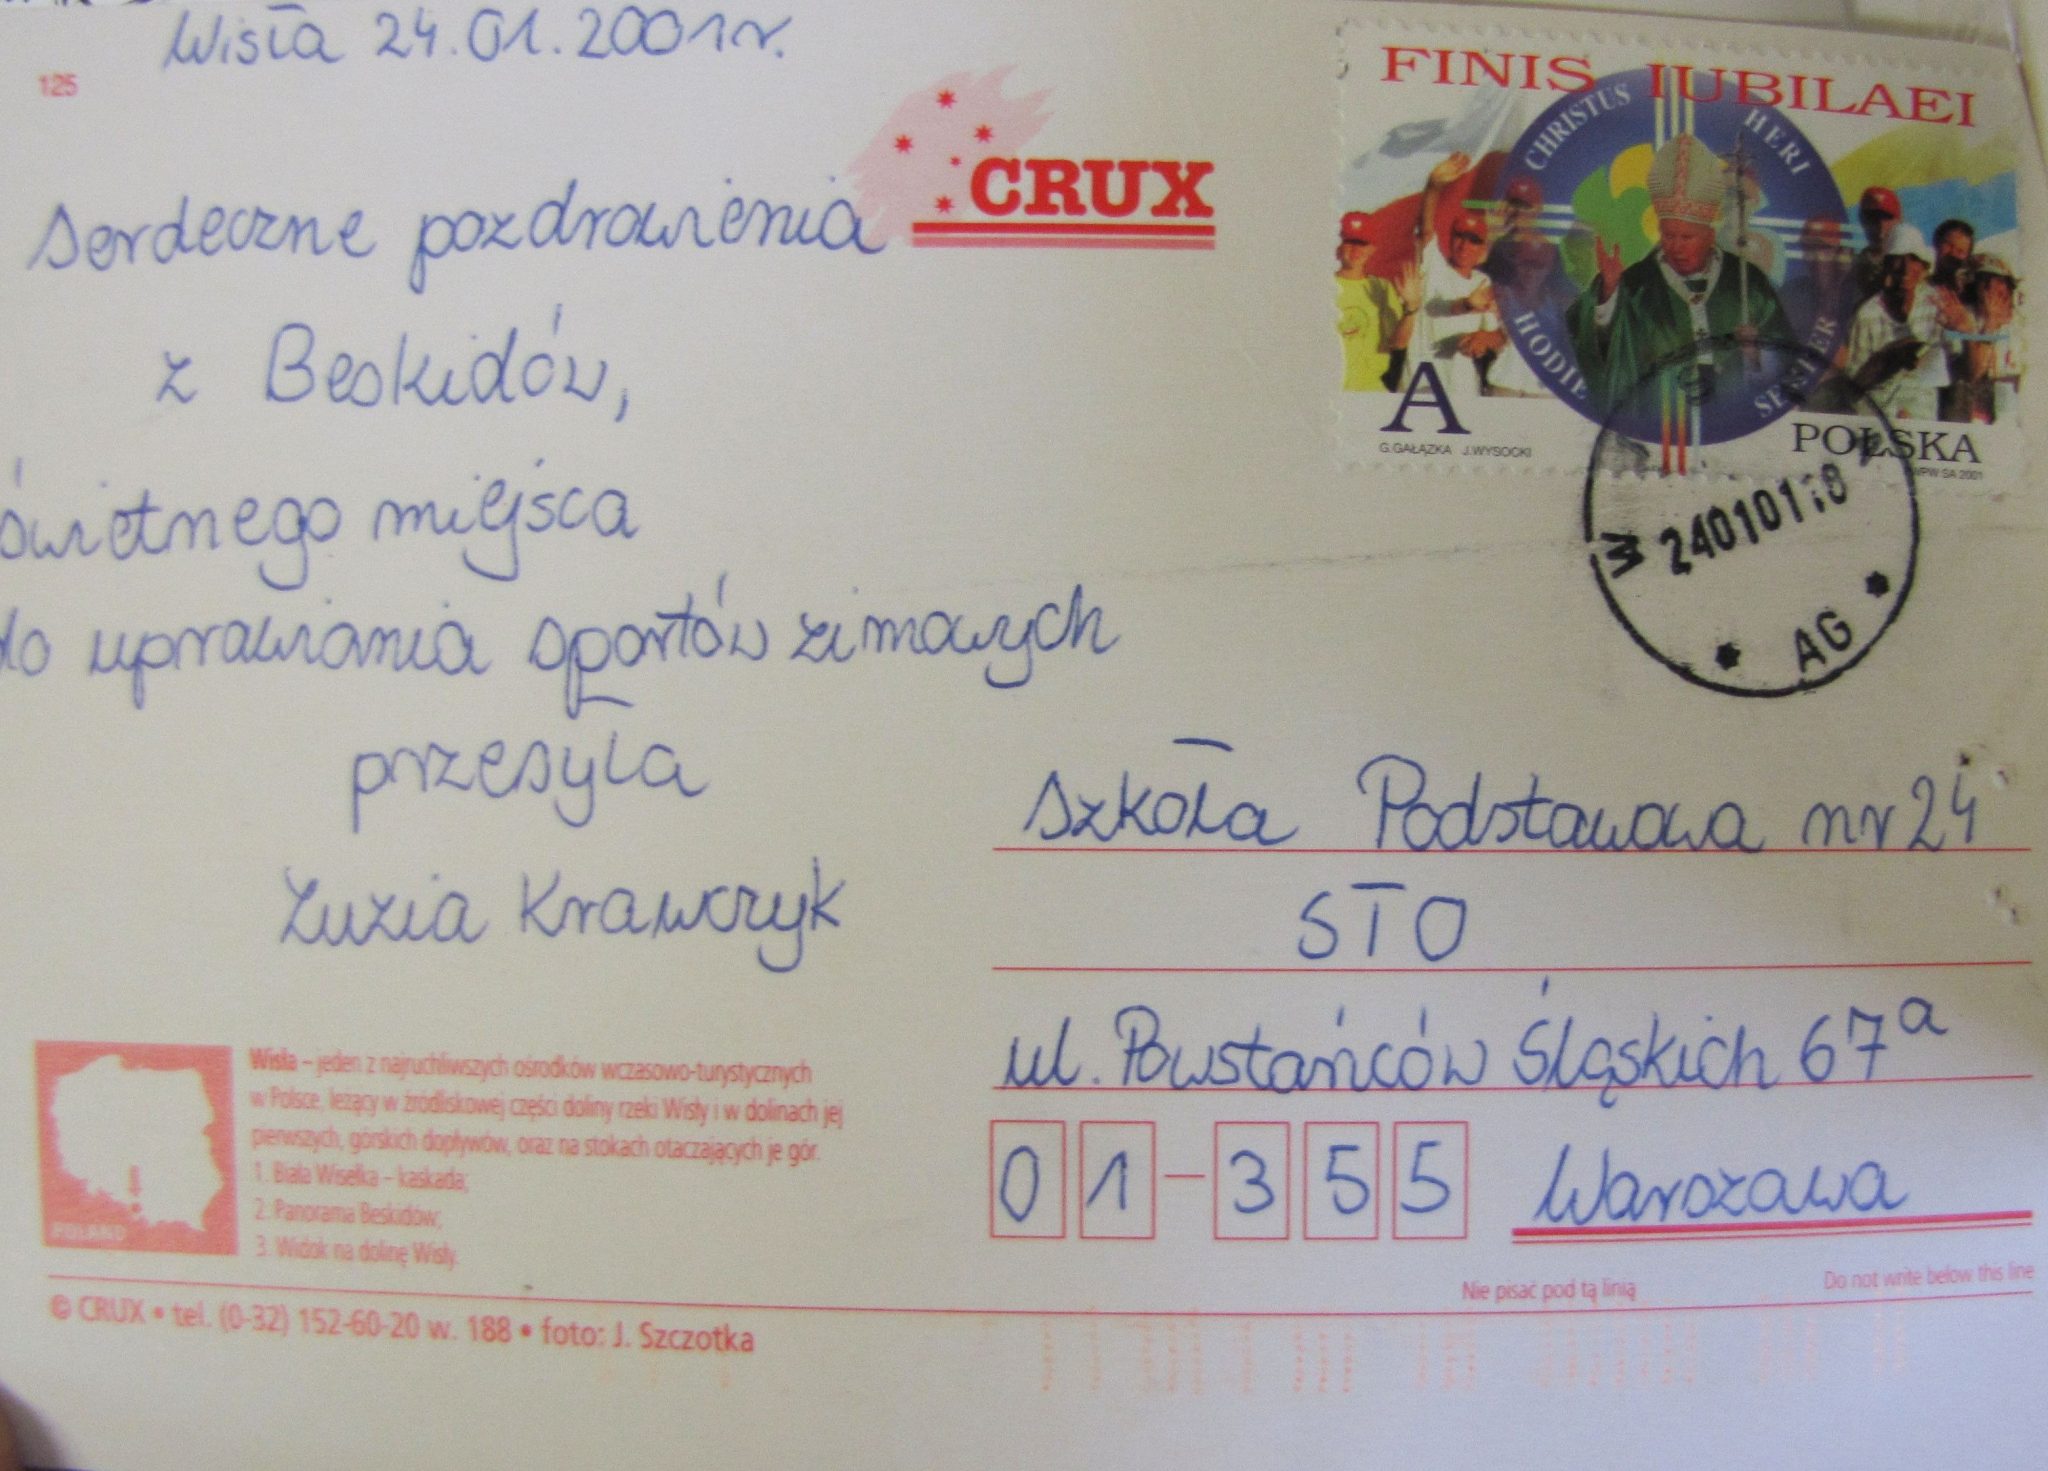 Wisła 24.01.2001r.
125
CRUX
Serdeczne pozdrowienia
z Beskidów,
świetnego miejsca
do uprawiania sportów zimowych
przesyła
Zuzia Krawczyk
FINIS IUBILAEI
CHRISTUS HERI
HODIE SEMPER
A
G.GAŁĄZKA J.WYSOCKI
POLSKA
PWPW SA 2001
240101
AG
Szkoła Podstawowa nr 24
STO
ul. Powstańców Śląskich 67a
01-355 Warszawa
Wisła – jeden z najruchliwszych ośrodków wczasowo-turystycznych
w Polsce, leżący w źródliskowej części doliny rzeki Wisły i w dolinach jej
pierwszych, górskich dopływów, oraz na stokach otaczających je gór.
1. Biała Wisełka – kaskada;
2. Panorama Beskidów;
3. Widok na dolinę Wisły.
POLAND
Nie pisać pod tą linią
Do not write below this line
© CRUX • tel. (0-32) 152-60-20 w. 188 • foto: J. Szczotka